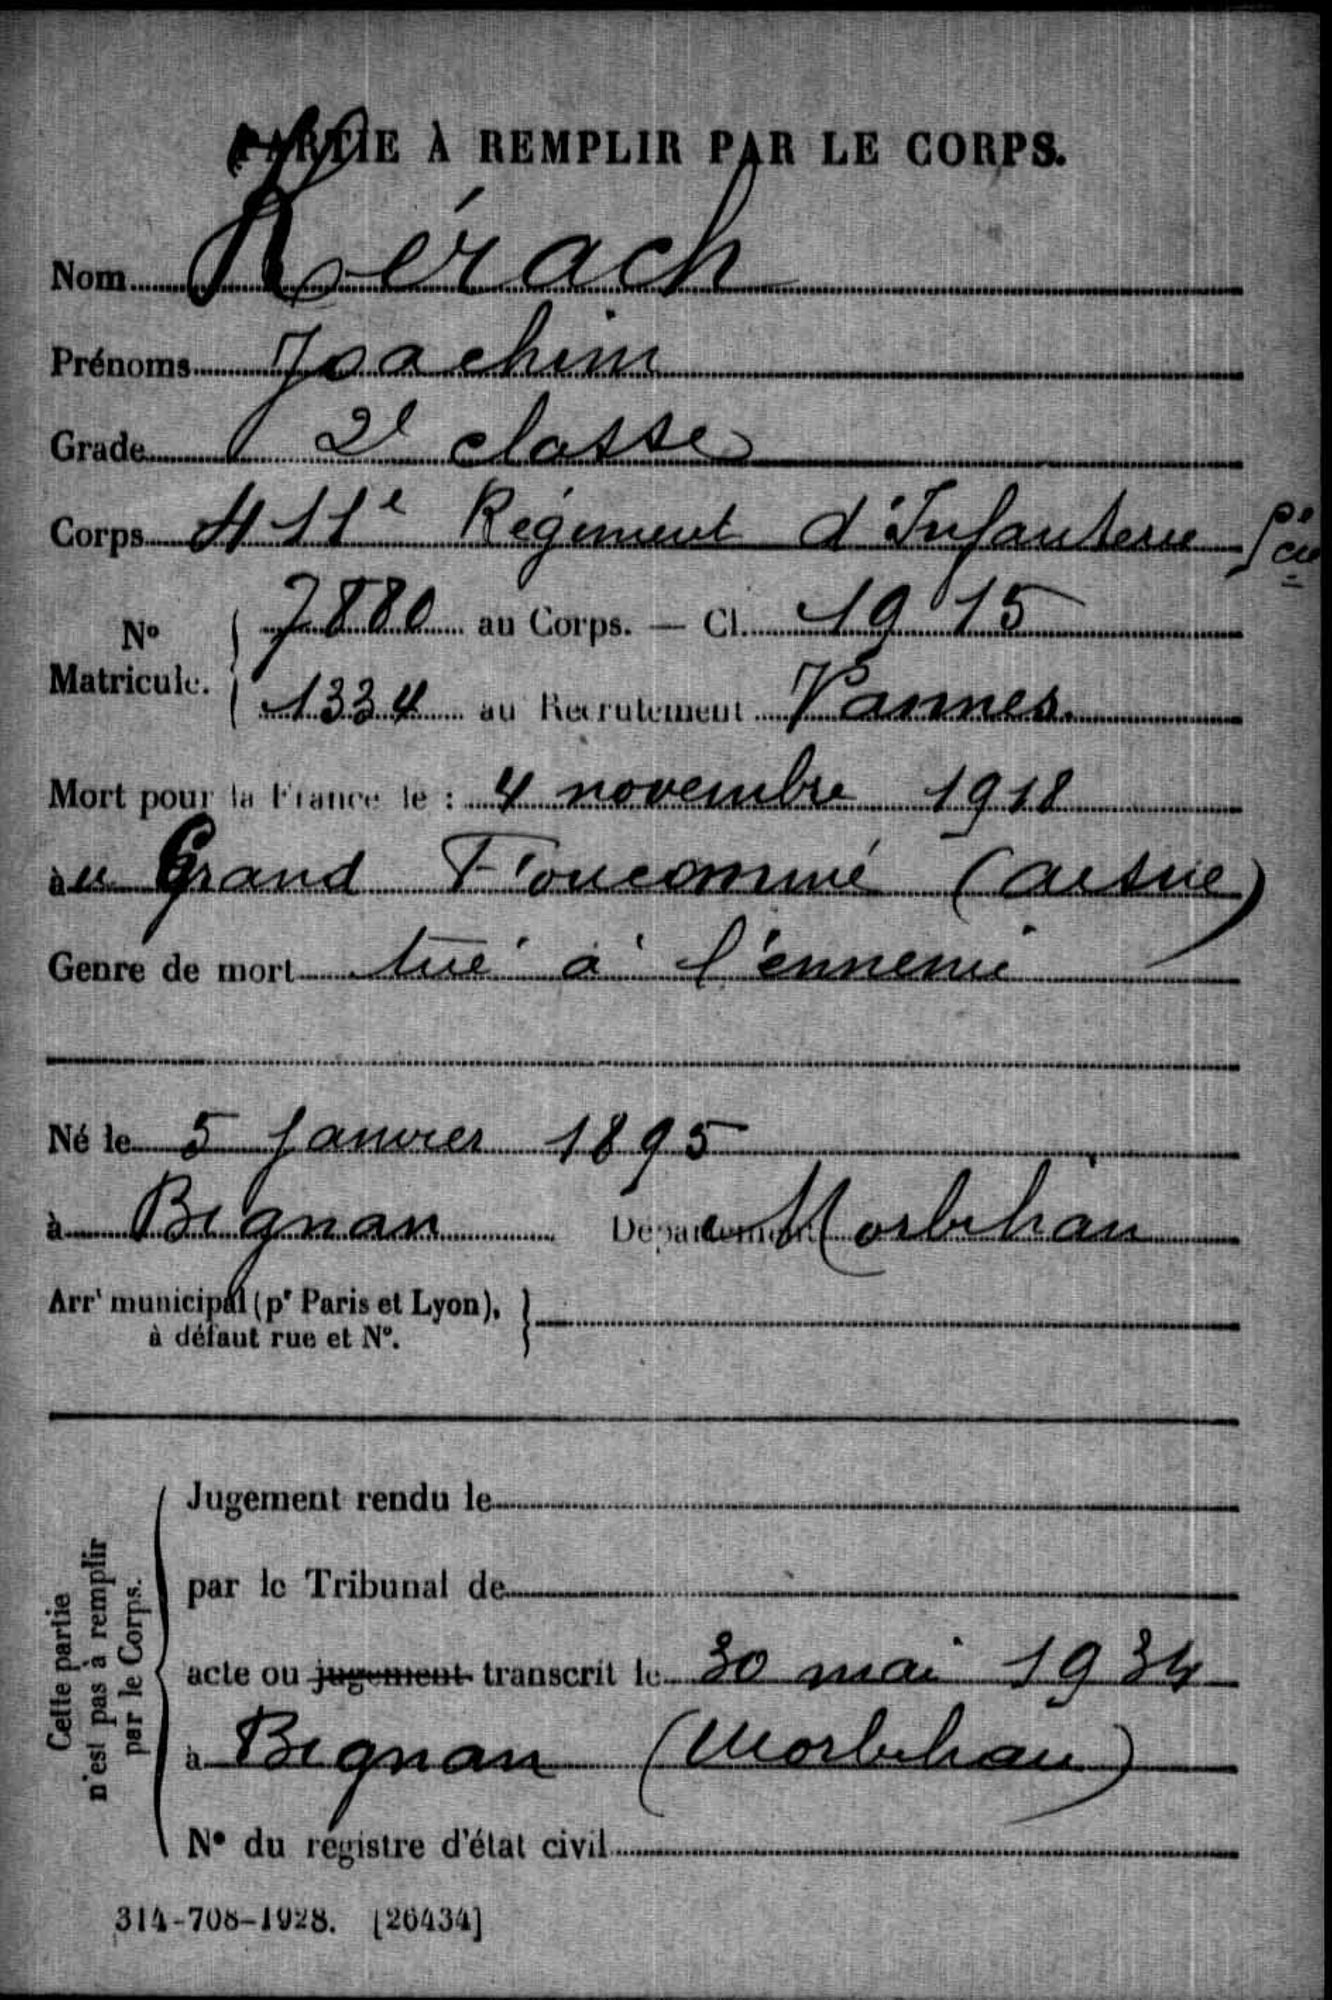 PARTIE À REMPLIR PAR LE CORPS.
Nom Kérach
Prénoms Joachim
Grade 2e classe
Corps 411e Régiment d'Infanterie
N° Matricule. { 7880 au Corps. — Cl. 1915
1334 au Recrutement Vannes.
Mort pour la France le : 4 novembre 1918
au Grand Foucommé (Aisne)
Genre de mort tué à l'ennemi
Né le 5 Janvier 1895
à Bignan Département Morbihan
Arrt municipal (pr Paris et Lyon),
à défaut rue et N°.
Cette partie
n'est pas à remplir
par le Corps.
Jugement rendu le
par le Tribunal de
acte ou jugement transcrit le 30 mai 1934
à Bignan (Morbihan)
N° du registre d'état civil
314-708-1928. [26434]